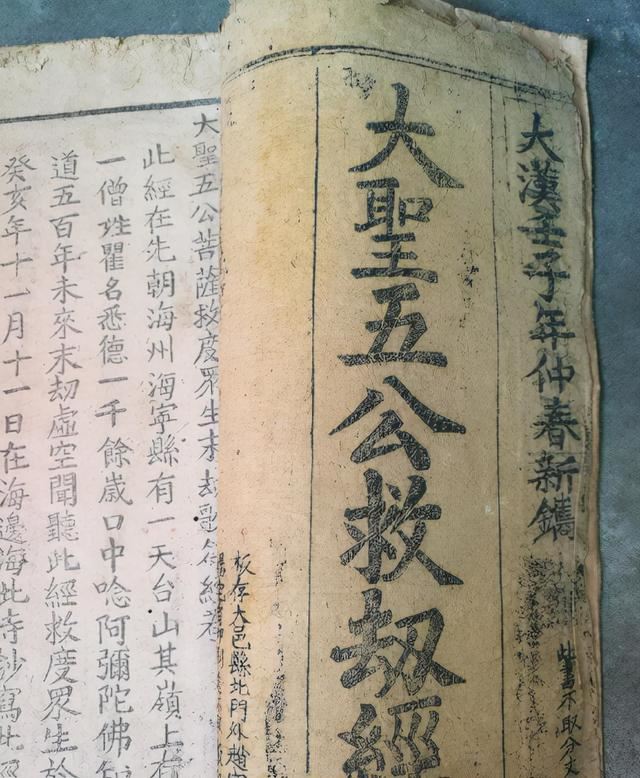 大漢壬子年仲春新鐫
此書不取分文
大聖五公救劫經
板存大邑縣北門外趙
大聖五公菩薩救度眾生末劫歌經者
此經在先朝海州海寧縣有一天台山其嶺上有
一僧姓瞿名悉德一千餘歲口中唸阿彌陀佛知
道五百年未來末劫虛空聞聽此經救度眾生於
癸亥年十一月十一日在海邊海此寺抄寫此經